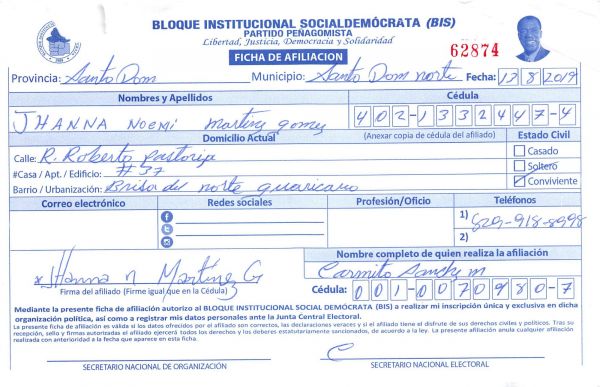 BLOQUE INSTITUCIONAL SOCIALDEMÓCRATA (BIS)
PARTIDO PEÑAGOMISTA
Libertad, Justicia, Democracia y Solidaridad
FICHA DE AFILIACION
62874
Provincia: Santo Dom Municipio: Santo Dom norte Fecha: 17/8/2019
Nombres y Apellidos
Cédula
JHANNA NOEMI Martinez gomez
402-1332447-4
Domicilio Actual
(Anexar copia de cédula del afiliado)
Estado Civil
Calle: R. Roberto pastoriza
Casado
#Casa / Apt. / Edificio: #37
Soltero
Barrio / Urbanización: Brisa del norte guaricano
Conviviente
Correo electrónico
Redes sociales
Profesión/Oficio
Teléfonos
1) 829-918-8998
2)
Nombre completo de quien realiza la afiliación
x Jhanna n Martínez G
Carmito Sanchez m
Firma del afiliado (Firme igual que en la Cédula)
Cédula: 001-0070980-7
Mediante la presente ficha de afiliación autorizo al BLOQUE INSTITUCIONAL SOCIAL DEMÓCRATA (BIS) a realizar mi inscripción única y exclusiva en dicha
organización política, así como a registrar mis datos personales ante la Junta Central Electoral.
La presente ficha de afiliación es válida si los datos ofrecidos por el afiliado son correctos, las declaraciones veraces y si el afiliado tiene el disfrute de sus derechos civiles y políticos. Tras su
recepción, sello y firmas autorizadas el afiliado ejercerá todos los derechos y los deberes estatutariamente sancionados, de acuerdo a la ley. La presente afiliación anula cualquier afiliación
realizada con anterioridad a la fecha que aparece en esta ficha.
SECRETARIO NACIONAL DE ORGANIZACIÓN
SECRETARIO NACIONAL ELECTORAL